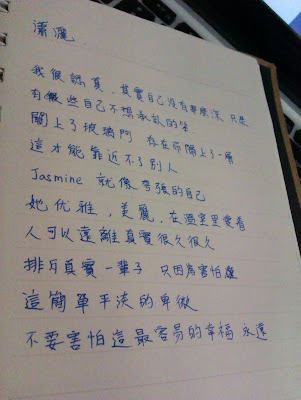 瀟灑
我很認真,其實自己沒有那麼深 只是
有些自己不想承認的
關上了玻璃門 存在而隔上了一層
這才能靠近不了別人
Jasmine 就像夸張的自己
她优雅,美麗,在溫室里愛着
人可以遠離真實很久很久
排斥真實一輩子 只因為害怕
這簡單平淡的卑微
不要害怕這最容易的幸福 永遠